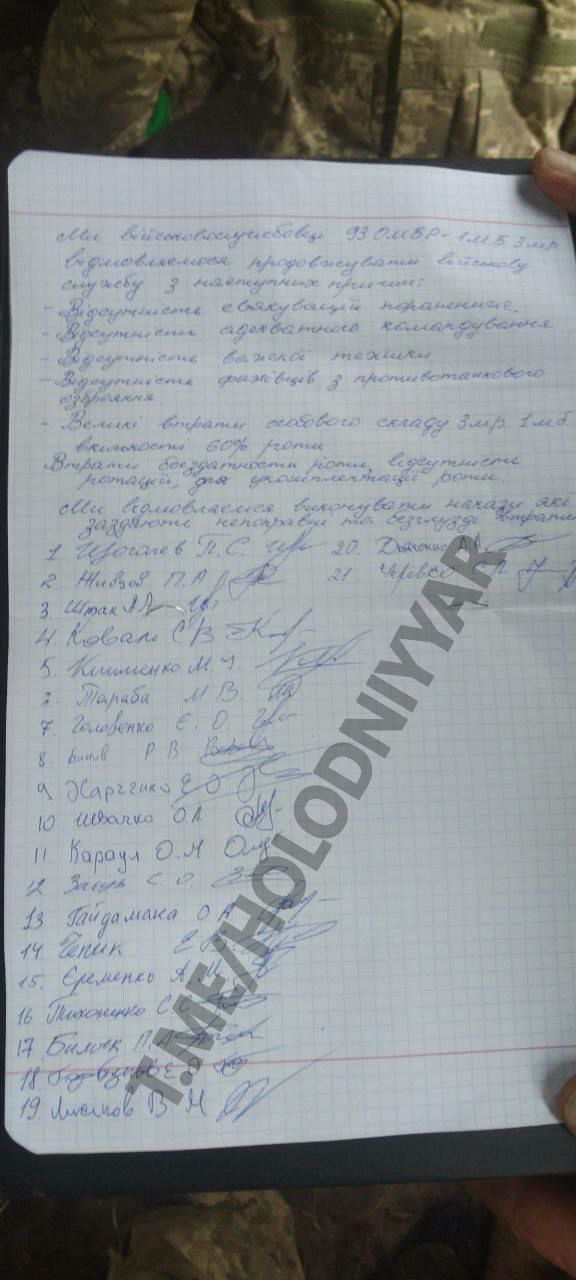 Ми військовослужбовці 93 ОМБР 1МБ 3мр
відмовляємося продовжувати військову
службу з наступних причин:
- Відсутність евакуацій поранених.
- Відсутність адекватного командування
- Відсутність важкої техніки
- Відсутність фахівців з противотанкового
озброяння
- Великі втрати особового складу 3мр 1мб
вкількості 60% роти
Втрати боєздатности роти, відсутність
ротацій, для укомплектації роти.
Ми відмовляємся виконувати накази які
заздають непоправні та безглузді втрати
1 П.С. 20. Дяченко
2. П.А 21.
3. Штак
4. Коваль С В
5. Клименко М.
Тараба М В.
7. Головенко Є. О
8. Р В
9 Харченко Е О
10 Швачко О.А
11 Караул О.М
12 С. О.
13 Гайдамака О А
14 Чепик Е
15. Єременко А
16 С
17 П.А
18
19. В М
T.ME/HOLODNIYYAR